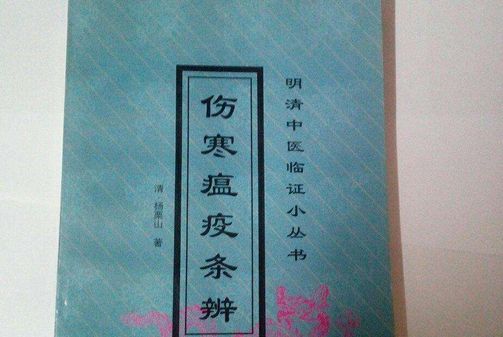 明清中医临证小丛书
伤寒瘟疫条辨
清 杨栗山 著